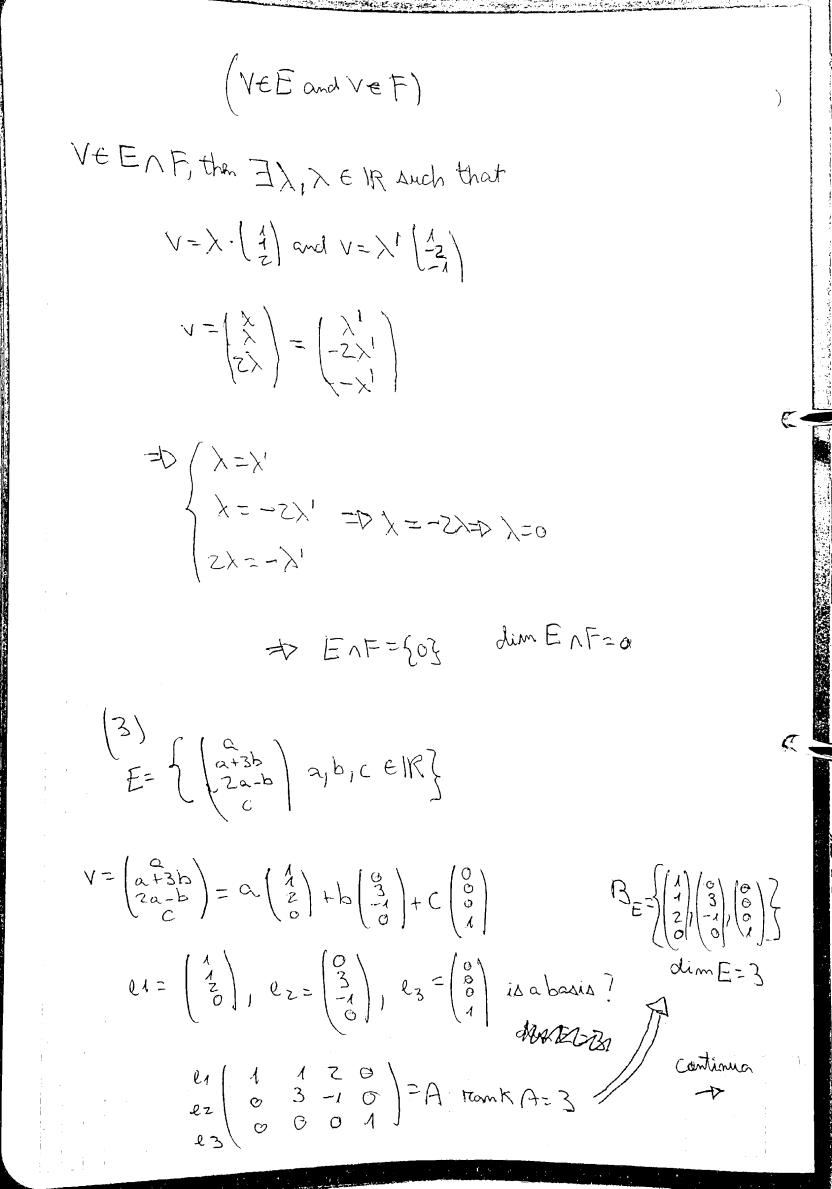 (V∈E and V∈F)
V∈ E∩F, then ∃λ, λ ∈ ℝ such that
V=λ·(1 1 2) and v=λ' (1 -2 -1)
v = (λ λ 2λ) = (λ' -2λ' -λ')
⇒ { λ=λ'
λ=-2λ' ⇒ λ=-2λ ⇒ λ=0
2λ=-λ'
⇒ E∩F={0} dim E∩F=0
(3)
E= { (a a+3b 2a-b c) | a,b,c ∈ℝ}
V= (a a+3b 2a-b c) = a (1 1 2 0) +b (0 3 -1 0) +c (0 0 0 1)
B_E={(1 1 2 0), (0 3 -1 0), (0 0 0 1)}
dim E=3
e1= (1 1 2 0), e2= (0 3 -1 0), e3= (0 0 0 1) is a basis?
e1 (1 1 2 0
e2 0 3 -1 0 =A rank A=3
e3 0 0 0 1)
continua
→